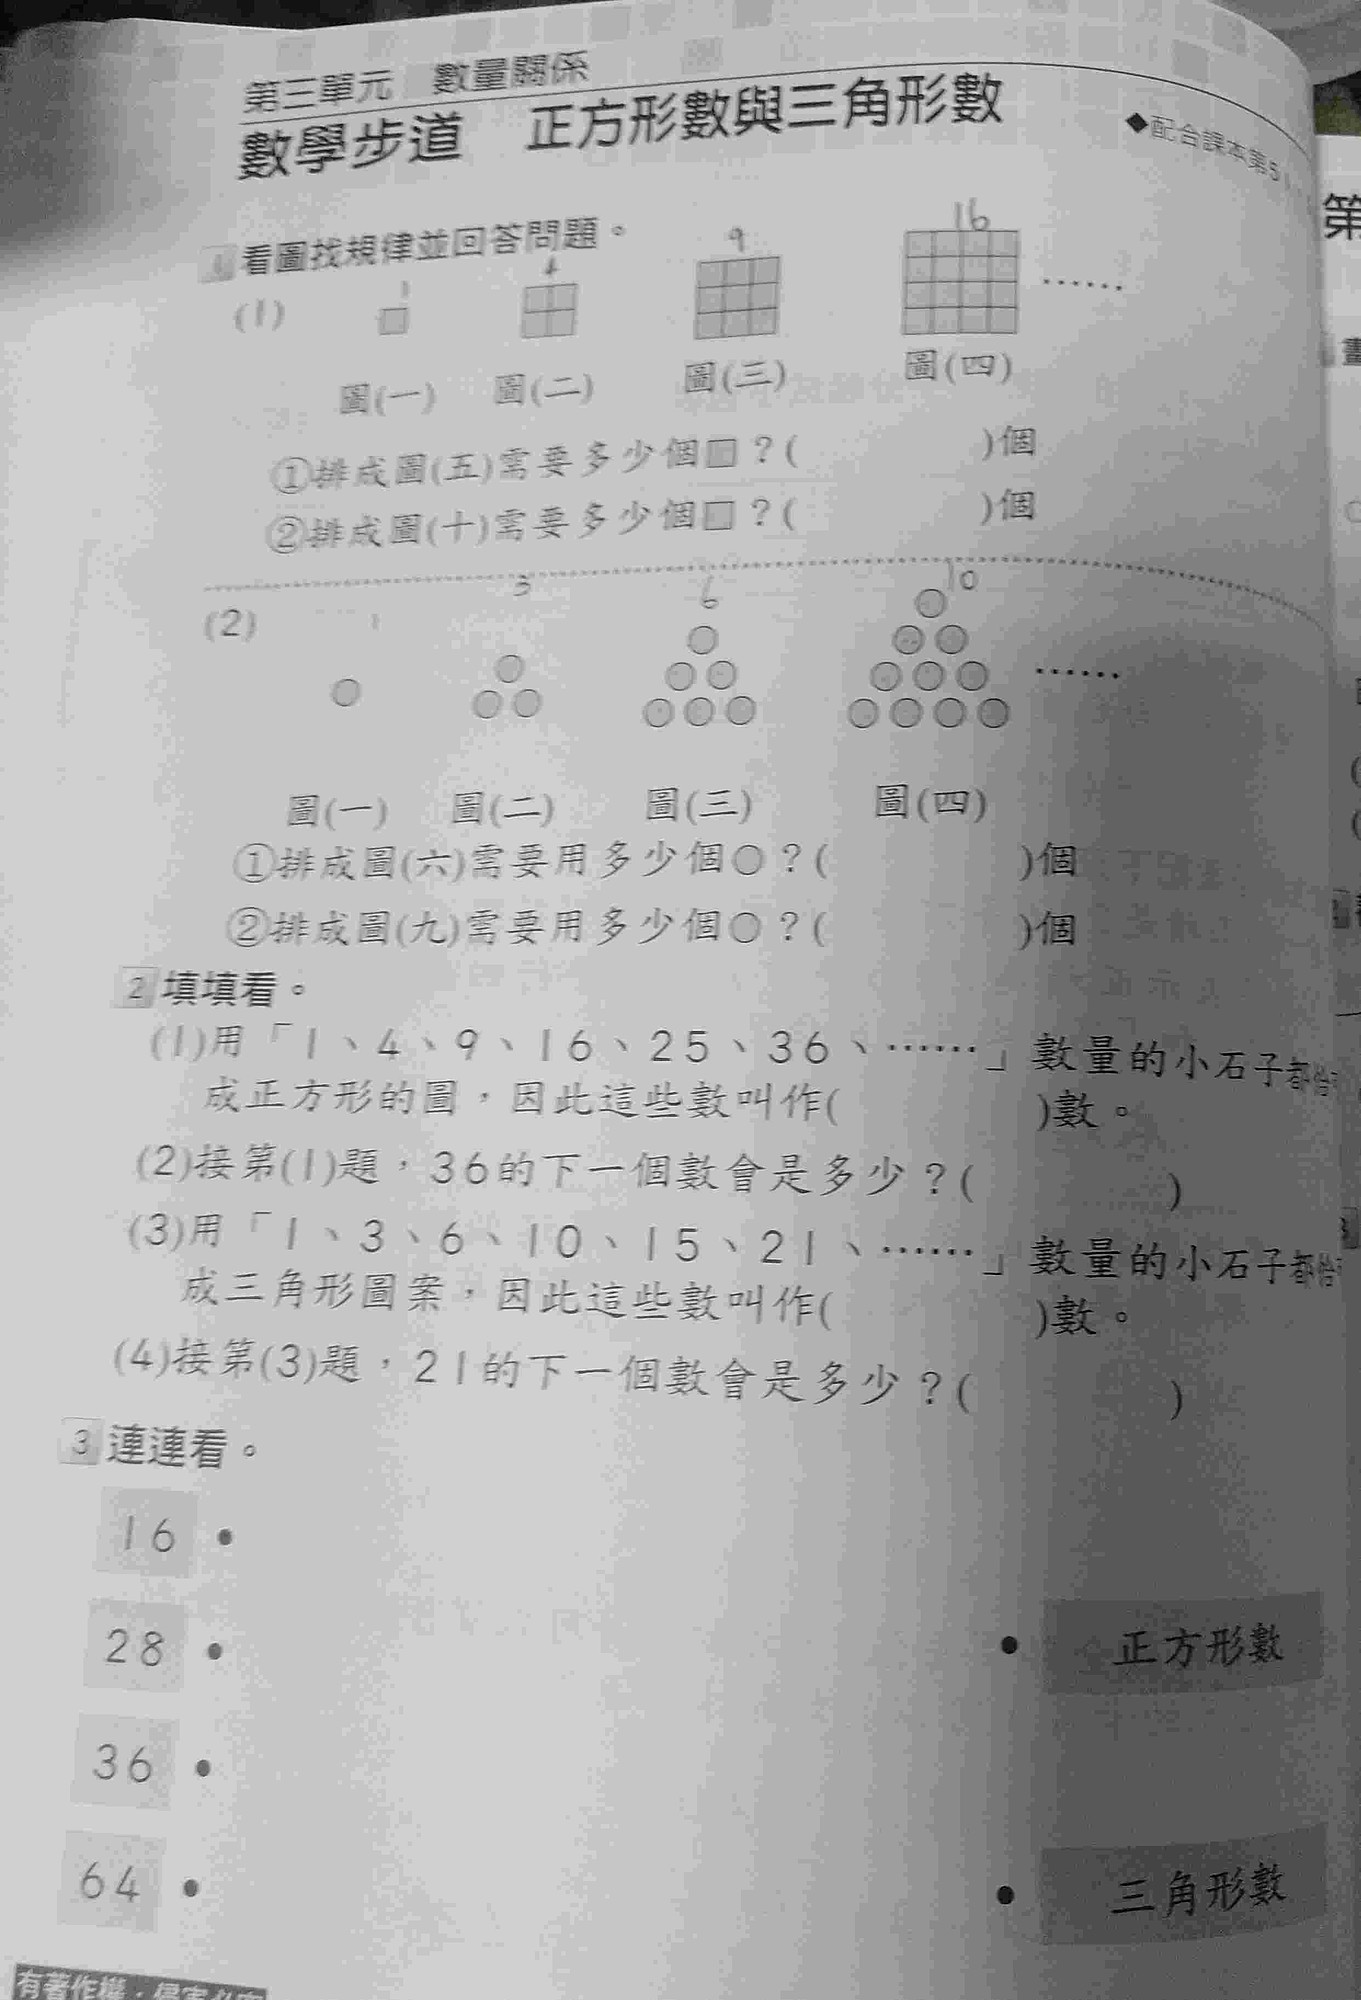 第三單元 數量關係
數學步道 正方形數與三角形數
◆配合課本第5
1 看圖找規律並回答問題。
1 4 9 16
(1) ……
圖(一) 圖(二) 圖(三) 圖(四)
①排成圖(五)需要多少個□？( )個
②排成圖(十)需要多少個□？( )個
1 3 6 10
(2) ……
圖(一) 圖(二) 圖(三) 圖(四)
①排成圖(六)需要用多少個○？( )個
②排成圖(九)需要用多少個○？( )個
2 填填看。
(1)用「1、4、9、16、25、36、……」數量的小石子都
成正方形的圖，因此這些數叫作( )數。
(2)接第(1)題，36的下一個數會是多少？( )
(3)用「1、3、6、10、15、21、……」數量的小石子都
成三角形圖案，因此這些數叫作( )數。
(4)接第(3)題，21的下一個數會是多少？( )
3 連連看。
16 •
28 • • 正方形數
36 •
64 • • 三角形數
有著作權．侵害必究
第